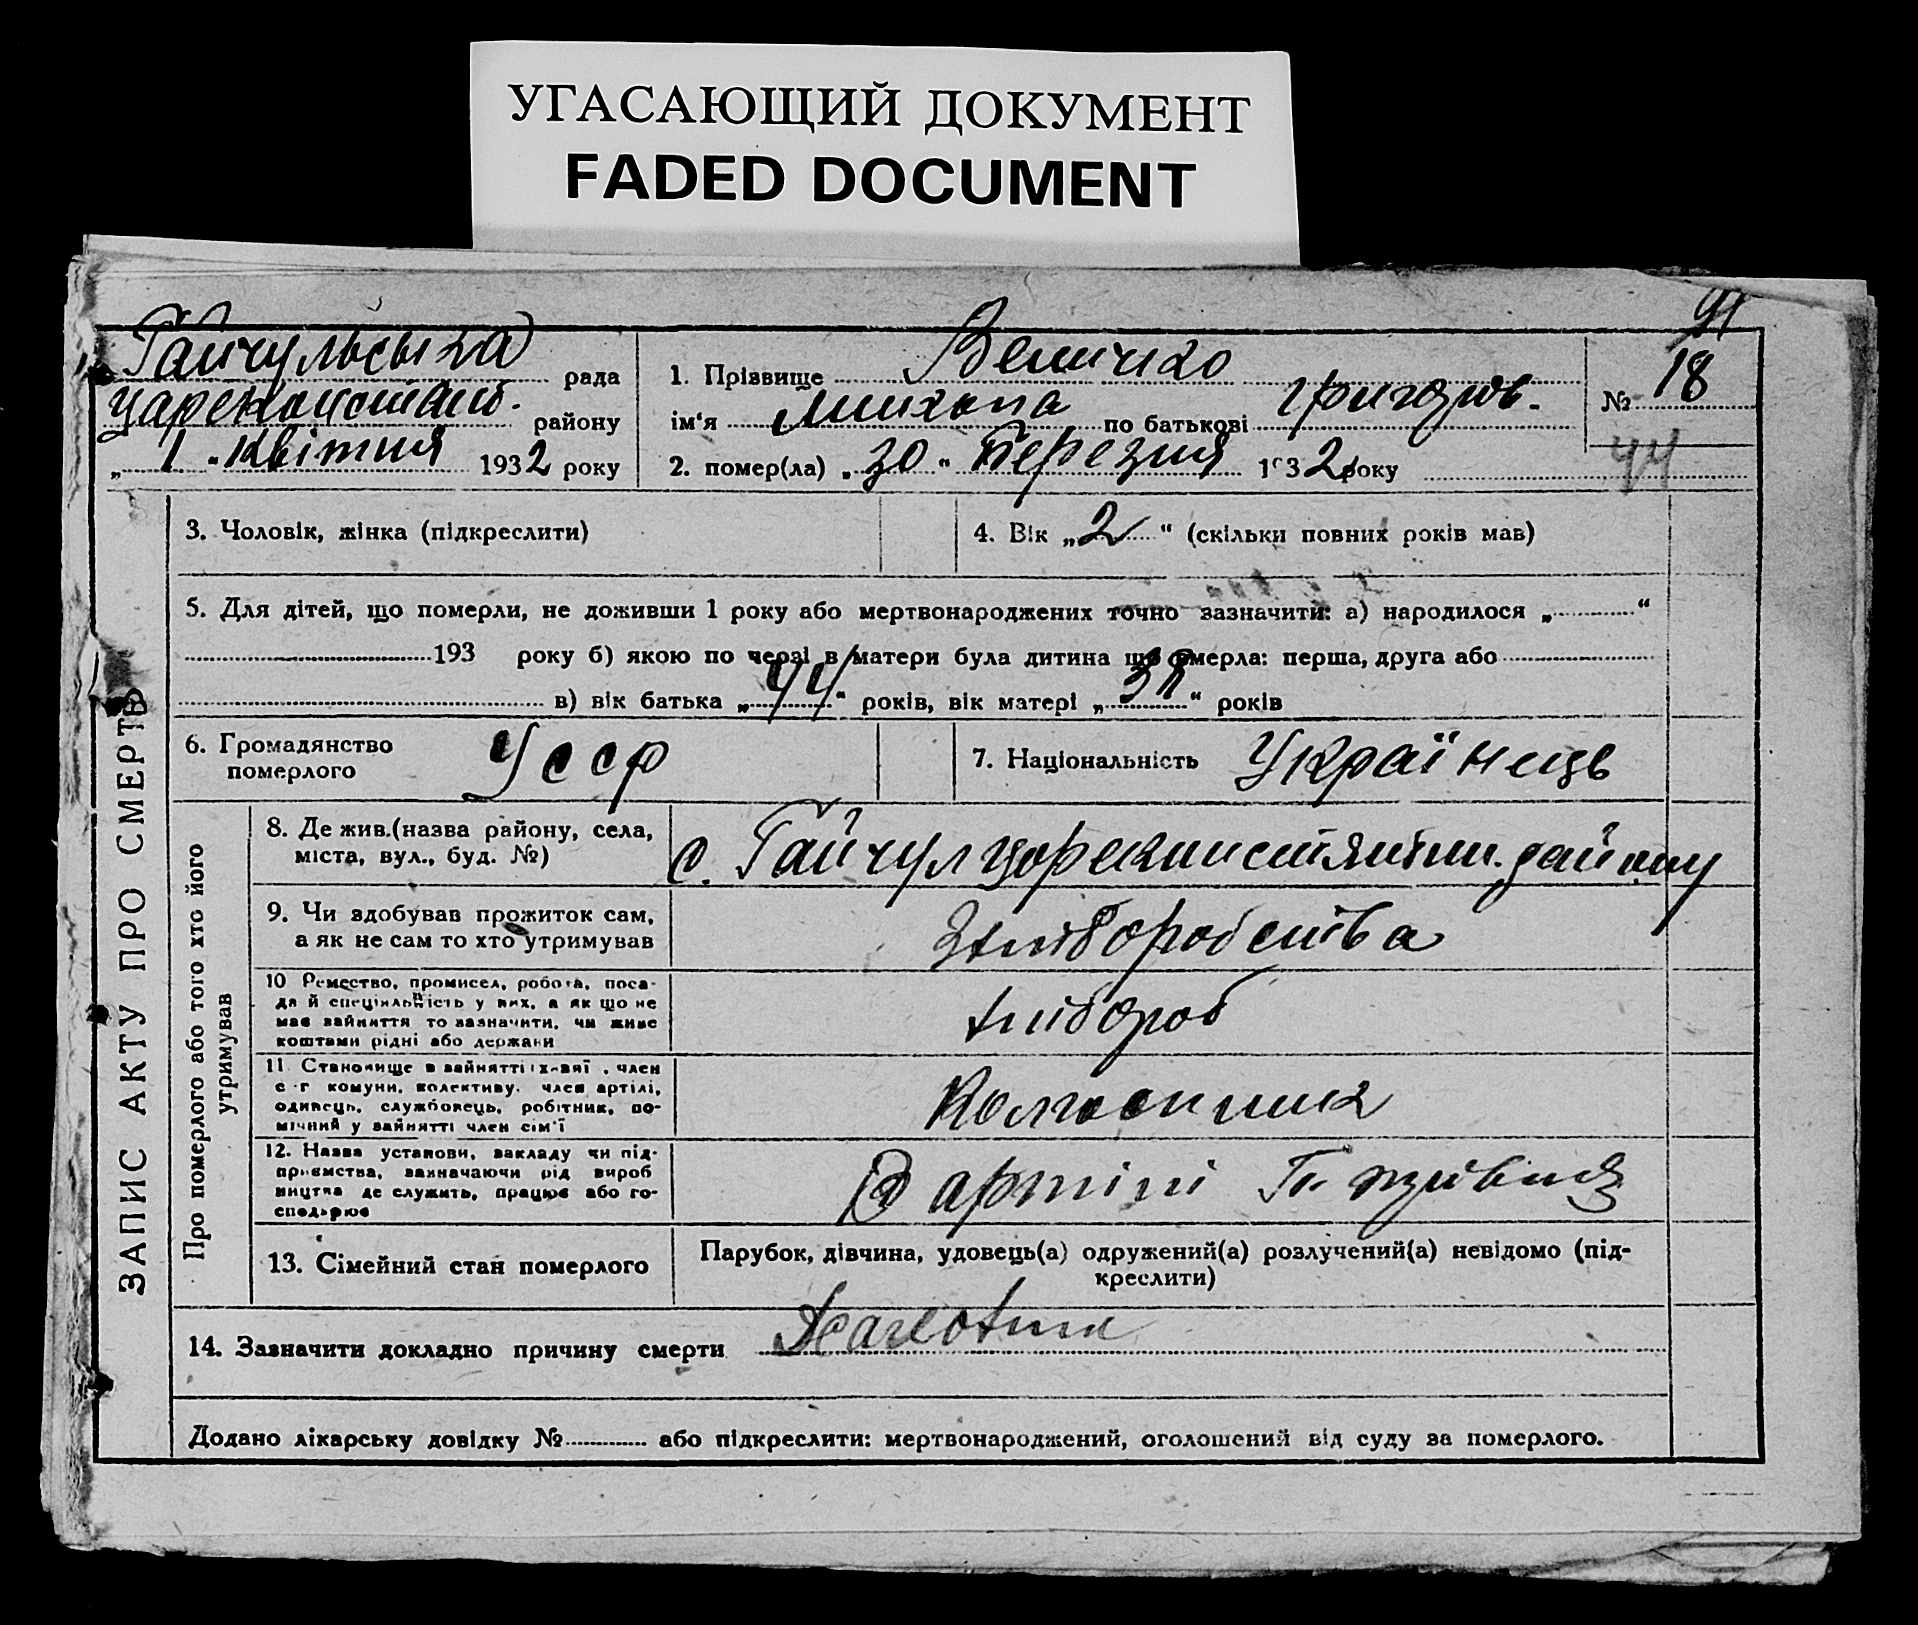 УГАСАЮЩИЙ ДОКУМЕНТ
FADED DOCUMENT
91
Гайчульська рада
Царекостант. району
„ 1 " Квітня 1932 року
1. Прізвище Величко
ім'я Микола по батькові Григоров.
2. помер(ла) „ 30 " Березня 1932 року
№ 18
44
ЗАПИС АКТУ ПРО СМЕРТЬ
3. Чоловік, жінка (підкреслити)
4. Вік „ 2 " (скільки повних років мав)
5. Для дітей, що померли, не доживши 1 року або мертвонароджених точно зазначити: а) народилося „ "
193 року б) якою по черзі в матери була дитина що вмерла: перша, друга або
в) вік батька „ 44 " років, вік матері „ 38 " років
6. Громадянство
померлого
Усср
7. Національність Українець
Про померлого або того хто його
утримував
8. Де жив.(назва району, села,
міста, вул., буд. №)
с. Гайчул району
9. Чи здобував прожиток сам,
а як не сам то хто утримував
З хліборобства
10 Ремество, промисел, робота, поса-
да й спеціяльність у них, а як що не
має зайняття то зазначити, чи живе
коштами рідні або держави
хлібороб
11 Становище в зайнятті: хазяї, член
с-г комуни, колективу, член артілі,
одинець, службовець, робітник, по-
мічний у зайнятті член сім'ї
Колгоспник
12. Назва установи, закладу чи під-
приємства, зазначаючи рід вироб
ництва де служить, працює або го-
сподарює
В артілі
13. Сімейний стан померлого
Парубок, дівчина, удовець(а) одружений(а) розлучений(а) невідомо (під-
креслити)
14. Зазначити докладно причину смерти
Додано лікарську довідку № або підкреслити: мертвонароджений, оголошений від суду за померлого.